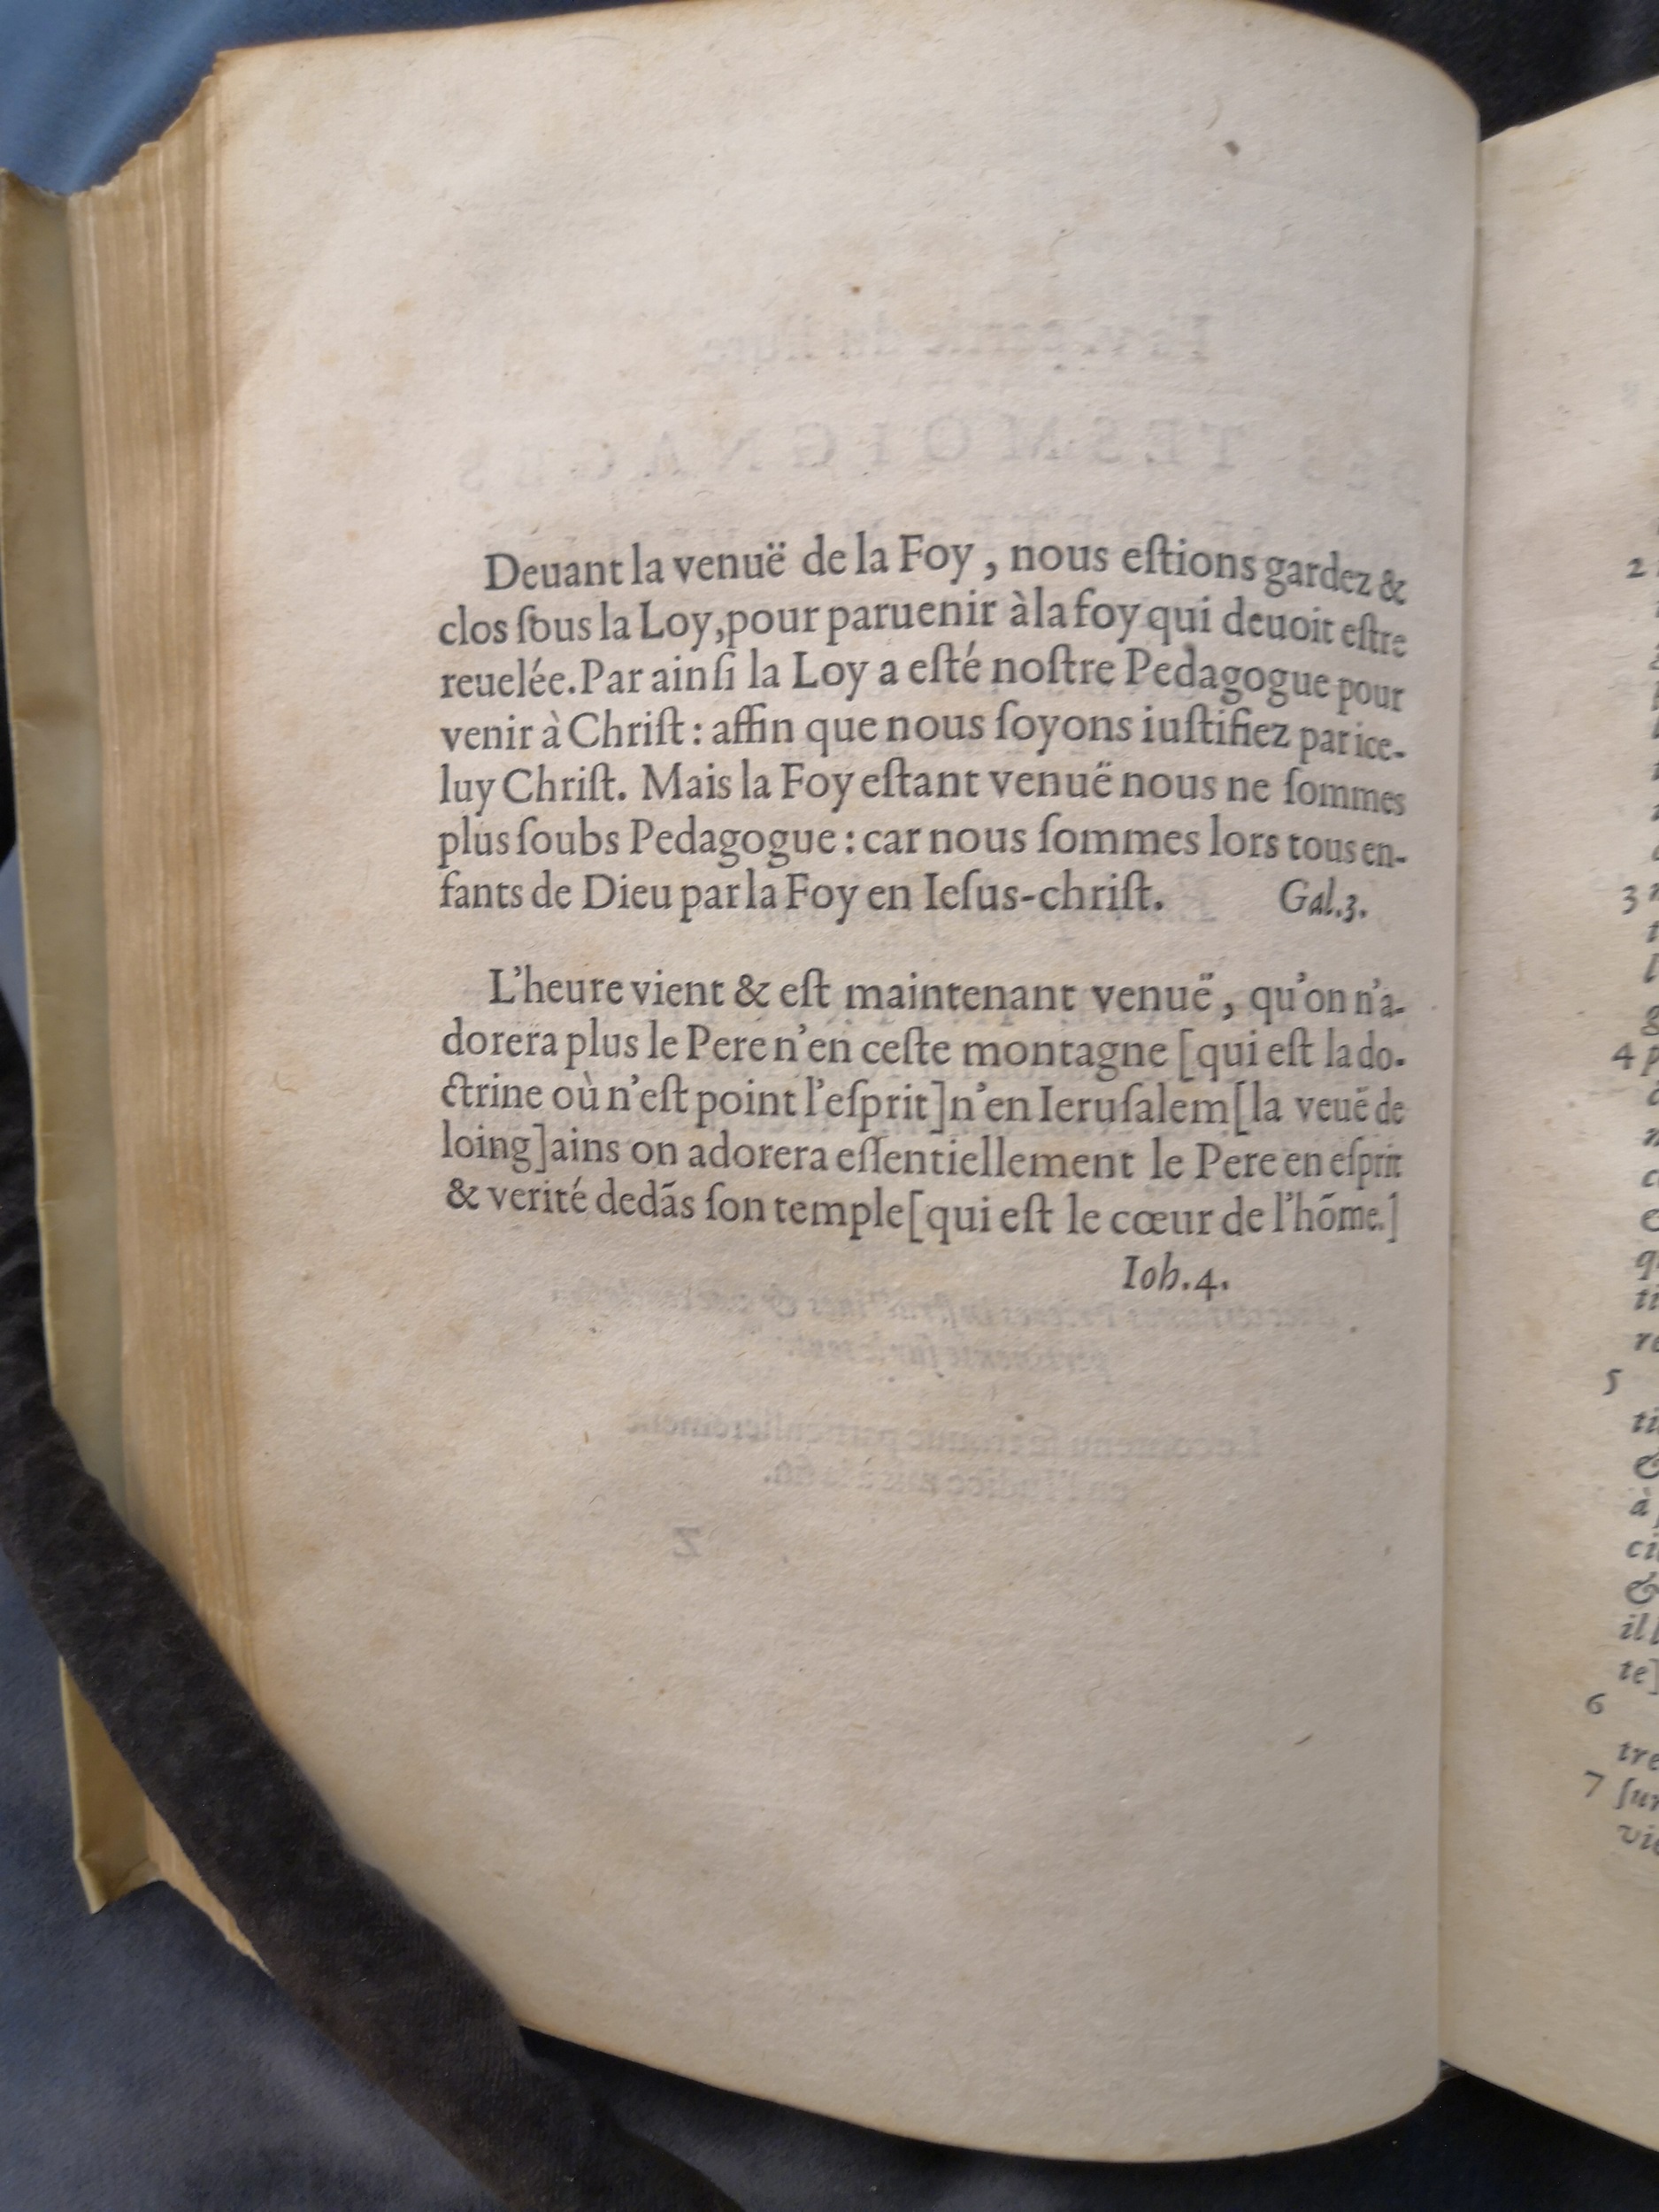 Deuant la venuë de la Foy, nous eſtions gardez &
clos ſous la Loy, pour paruenir à la foy qui deuoit eſtre
reuelée. Par ainſi la Loy a eſté noſtre Pedagogue pour
venir à Chriſt : affin que nous ſoyons iuſtifiez par ice-
luy Chriſt. Mais la Foy eſtant venuë nous ne ſommes
plus ſoubs Pedagogue : car nous ſommes lors tous en-
fants de Dieu par la Foy en Ieſus-chriſt. Gal.3.
L'heure vient & eſt maintenant venuë, qu'on n'a-
dorera plus le Pere n'en ceſte montagne [qui eſt la do-
ctrine où n'eſt point l'eſprit] n'en Ieruſalem [la veuë de
loing] ains on adorera eſſentiellement le Pere en eſprit
& verité dedãs ſon temple [qui eſt le cœur de l'hõme.]
Ioh.4.
2
3
4
5
6
7